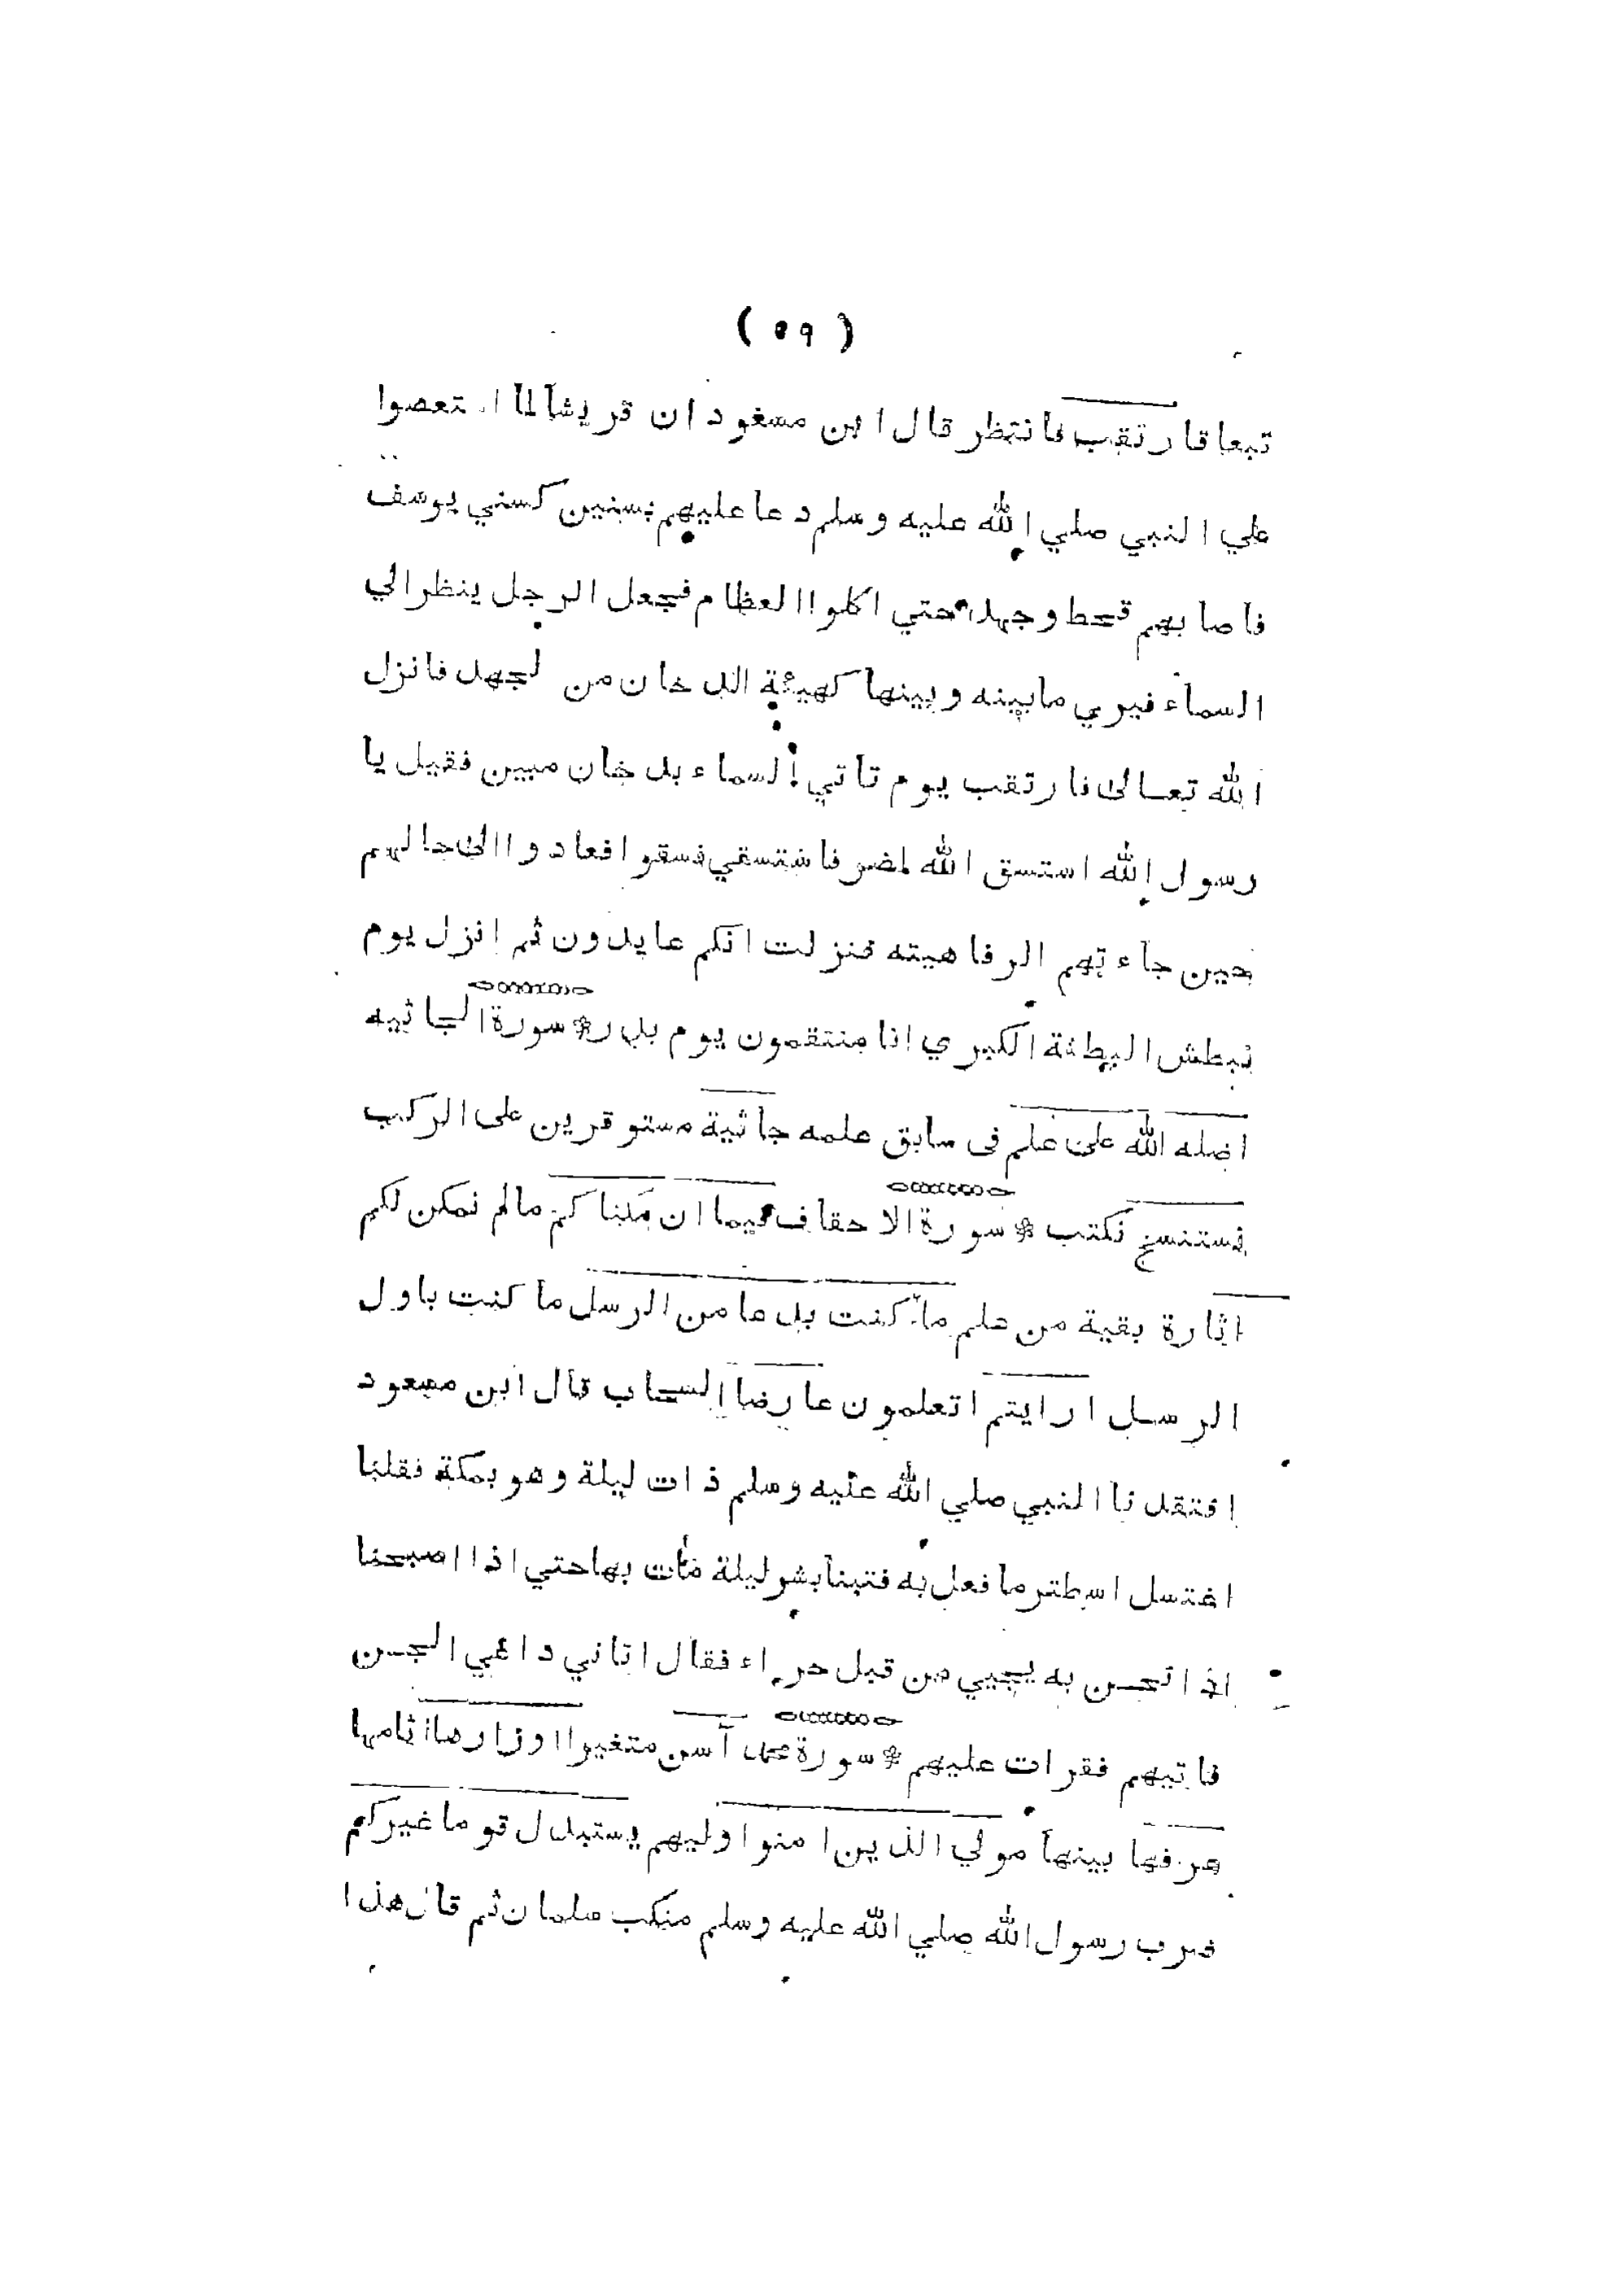 ( ٥٩ )
تبعا فارتقب فانتظر قال ابن مسعود ان قريشا لما استعصوا
علي النبي صلي الله عليه وسلم دعا عليهم بسنين كسني يوسف
فاصابهم قحط وجهد حتي اكلوا العظام فجعل الرجل ينظر الي
السماء فيري ما بينه وبينها كهيئة الدخان من لجهد فانزل
الله تعالى فارتقب يوم تاتي السماء بدخان مبين فقيل يا
رسول الله استسق الله لمضر فاستسقي فسقوا فعادوا الى حالهم
حين جاءتهم الرفاهيته فنزلت انكم عايدون ثم انزل يوم
نبطش البطشة الكبري انا منتقمون يوم بدر * سورة الجاثيه
اضله الله على علم فى سابق علمه جاثية مستوفزين على الركب
نستنسخ نكتب * سورة الاحقاف فيما ان مكناكم مالم نمكن لكم
اثارة بقية من علم ما كنت بدعا من الرسل ما كنت باول
الرسل ارايتم اتعلمون عارضا السحاب قال ابن مسعود
افتقدنا النبي صلي الله عليه وسلم ذات ليلة وهو بمكة فقلنا
اغتسل اسطتر ما فعل به فتبنا بشر ليلة مات بها حتي اذا اصبحنا
اذا نحسن به يجيي من قبل حراء فقال اتاني داعي الجن
فاتيهم فقرات عليهم * سورة محمد آسن متغيرا اوزارها اثامها
عرفها بينها مولي الذين امنوا وليهم يستبدل قوما غيركم
ضرب رسول الله صلي الله عليه وسلم منكب سلمان ثم قال هذا